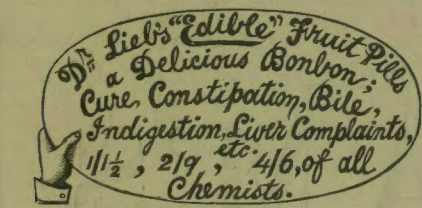 Dr Lieb's "Edible" Fruit Pills
a Delicious Bonbon;
Cure, Constipation, Bile,
Indigestion, Liver Complaints,
1/1½, 2/9, etc. 4/6, of all
Chemists.